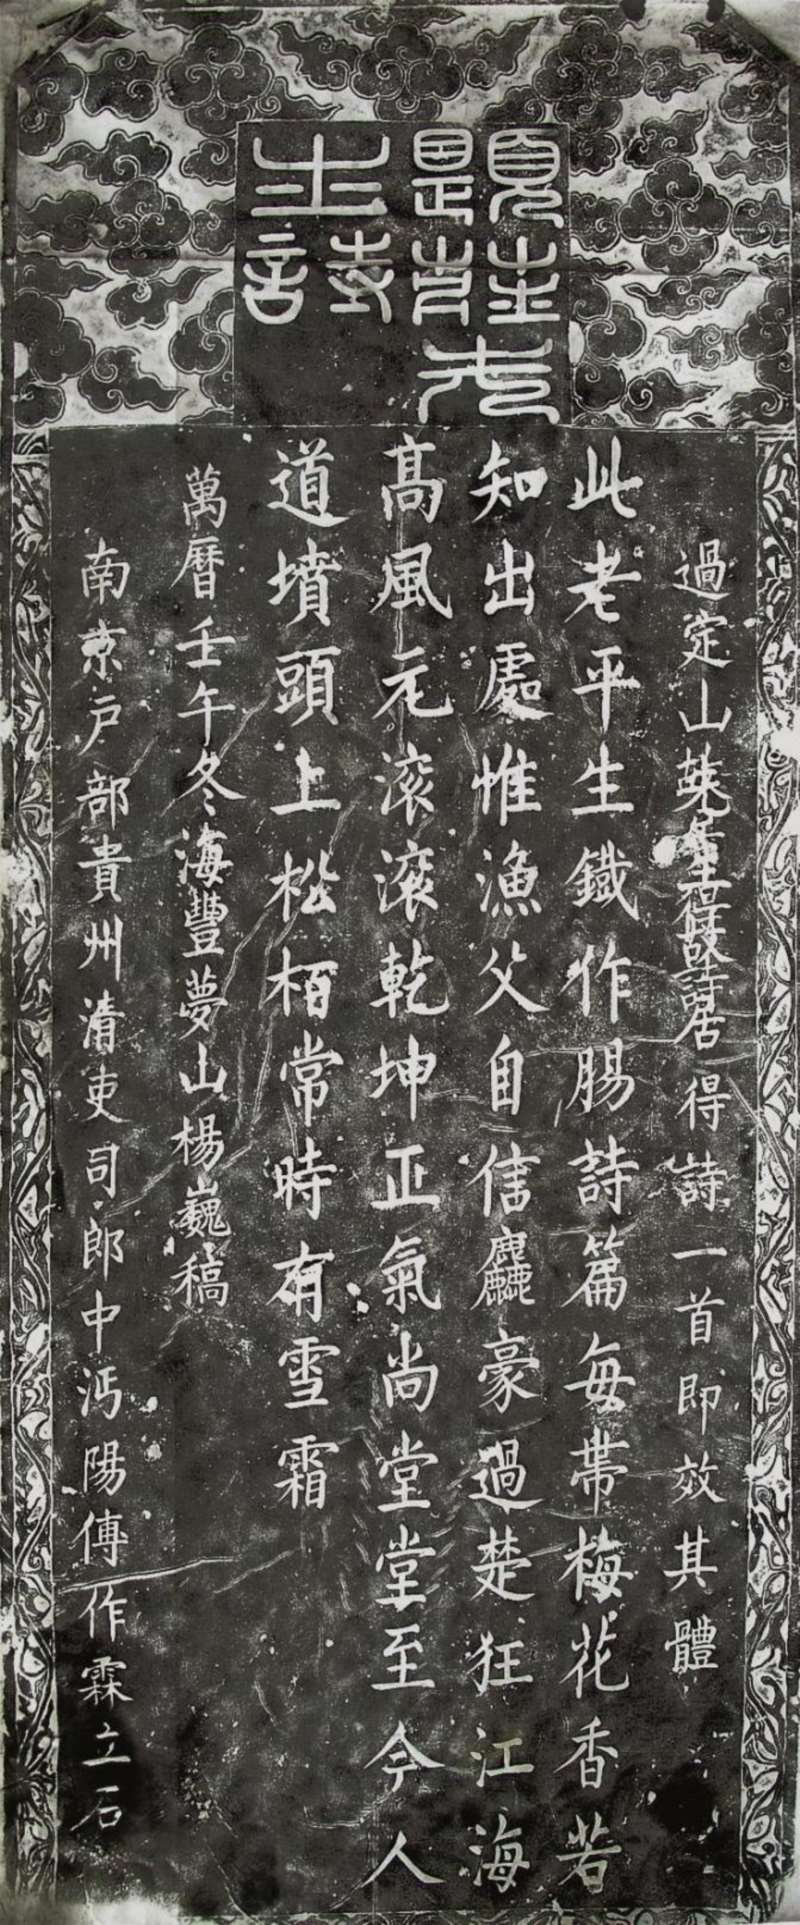 過定山居得詩一首即效其體
此老平生鐵作腸詩篇每帶梅花香若
知出處惟漁父自信麤豪過楚狂江海
高風元滚滚乾坤正氣尚堂堂至今人
道墳頭上松栢常時有雪霜
萬曆壬午冬海豐夢山楊巍稿
南京戶部貴州清吏司郎中沔陽傅作霖立石